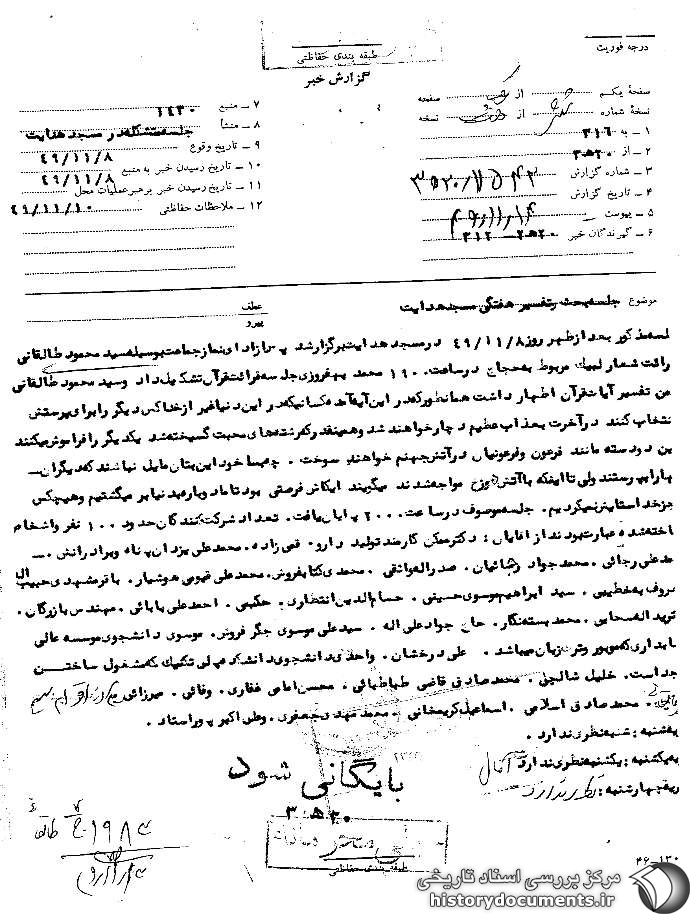 طبقه بندی حفاظتی
درجه فوریت
گزارش خبر
صفحهٔ یکم از یک صفحه
نسخهٔ شماره از نسخه
۱ ـ به ۳۱۶
۲ ـ از ۳۵۲۰
۳ ـ شماره گزارش
۴ ـ تاریخ گزارش
۵ ـ پیوست
۶ ـ گیرندگان خبر
۷ ـ منبع ۱۴۳۰
۸ ـ منشأ جلسه متشکله در مسجد هدایت
۹ ـ تاریخ وقوع ۴۹/۱۱/۸
۱۰ ـ تاریخ رسیدن خبر به منبع ۴۹/۱۱/۸
۱۱ ـ تاریخ رسیدن خبر به رهبر عملیات محل ۴۹/۱۱/۱۰
۱۲ ـ ملاحظات حفاظتی
موضوع جلسه بحث و تفسیر هفتگی مسجد هدایت
عطف
پیرو
لسه مذکور بعد از ظهر روز ۴۹/۱۱/۸ در مسجد هدایت برگزار شد پس از ادای نماز جماعت بوسیله سید محمود طالقانی
رائت شعار لبیک مربوط به حجاج در ساعت ۱۹۰۰ محمد بهفروزی جلسه قرائت قرآن تشکیل داد و سید محمود طالقانی
من تفسیر آیات قرآن اظهار داشت همانطور که در این آیه آمده کسانیکه در این دنیا غیر از خدا کس دیگر را برای پرستش
نتخاب کنند در آخرت بعذاب عظیم دچار خواهند شد و همینقدر که رشته های محبت گسیخته شد یکدیگر را فراموش میکنند
ین دو دسته مانند فرعون و فرعونیان در آتش جهنم خواهند سوخت . چه بسا خود این بتان مایل نباشند که دیگران
نها را بپرستند ولی تا اینکه با آتش دوزخ مواجه شدند میگویند ایکاش فرصتی بود تا ما دوباره بدنیا بر میگشتیم و هیچکس
جز خدا ستایش نمیکردیم . جلسه موصوف در ساعت ۲۰۰۰ پایان یافت . تعداد شرکت کنندگان حدود ۱۰۰ نفر و اشخاص
اخته شده عبارت بودند از آقایان : دکتر کارمند تولید دارو . قمی زاده . محمد علی یزدان پناه و برادرانش .
مد علی رجائی . محمد جواد رضائیان . صدراله واثقی . محمدی کتابفروش . محمد علی قیومی هوشیار . باقر مشهدی حبیب اله
عروف به خطیبی . سید ابراهیم موسوی حسینی . حسام الدین انتظاری . حکیمی . احمد علی بابائی . مهندس بازرگان .
یداله سحابی . محمد بسته نگار . حاج جواد علی اله . سید علی موسوی جگر فروش . موسوی دانشجوی موسسه عالی
علی درخشان . واحدی دانشجوی دانشکده پلی تکنیک که مشغول ساختن
جد است . خلیل شالچی . محمد صادق قاضی طباطبائی . محسن امامی غفاری . وفائی . میرزائی
محمد صادق اسلامی . اسماعیل کریمخانی . محمد مهدی جعفری . و علی اکبر پور استاد .
یه شنبه : شنبه نظری ندارد .
یه یکشنبه : یکشنبه نظری ندارد
ریه چهارشنبه : نظری ندارد
بایگانی شود
۳۵۲۰
طبقه بندی حفاظتی
۴۶-۱۳۰
مرکز بررسی اسناد تاریخی
historydocuments.ir